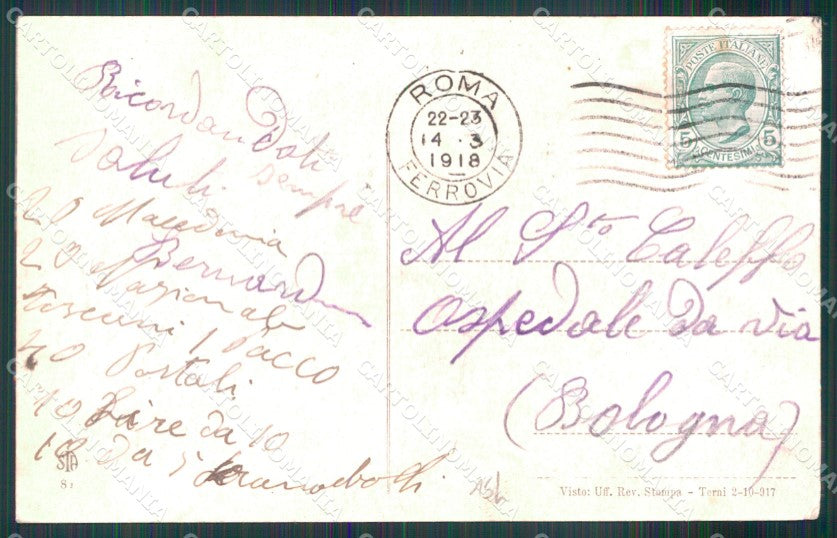 ROMA
22-23
14 · 3
1918
FERROVIA
POSTE ITALIANE
5 5
CENTESIMI
Ricordandoti
sempre
saluti
Bernard
20 Macedonia
20 Nazionale
Toscani 1 Pacco
40 Postali
10 Lire da 10
10 da 5
Al S.to Caleffo
Ospedale da via
(Bologna)
STA
Visto: Uff. Rev. Stampa - Terni 2-10-917
CARTOLINOMANIA